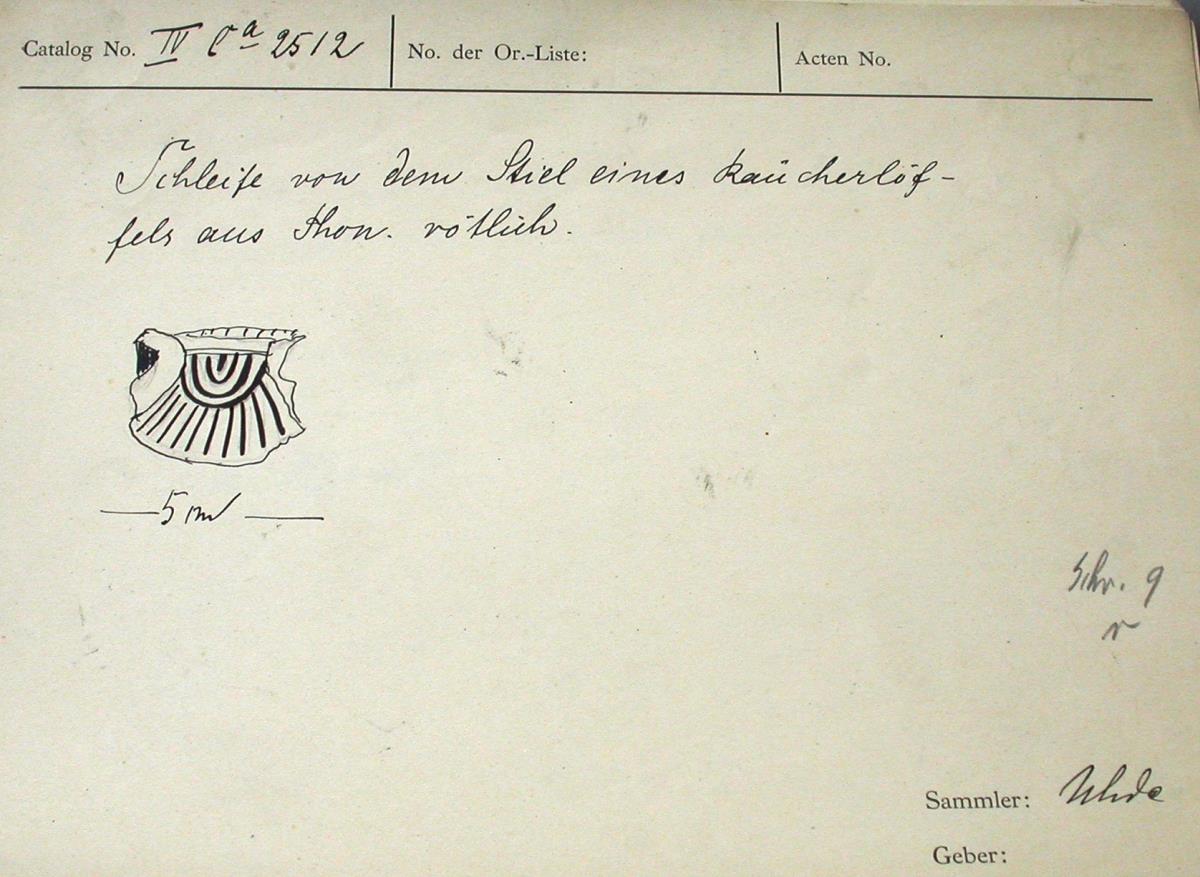 Catalog No. IV Ca 2512 No. der Or.-Liste: Acten No.
Schleife von dem Stiel eines Räucherlöf-
fels aus Thon. rötlich.
5 cm
Schr. 9
r
Sammler: Uhde
Geber: